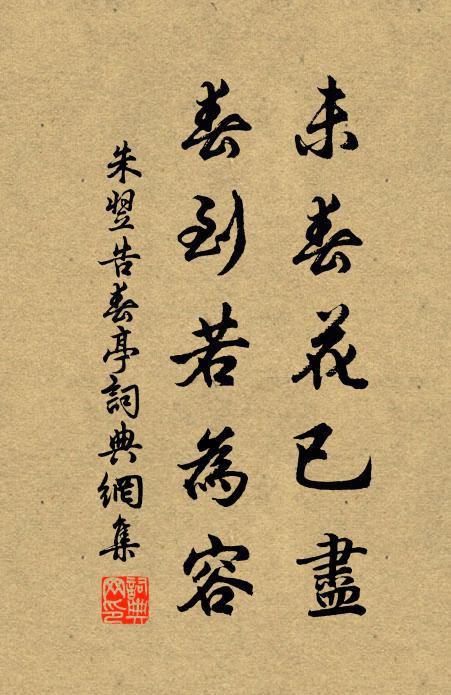 未春花已盡
春到若為容
朱翌告春亭詞典網集
詞典网印